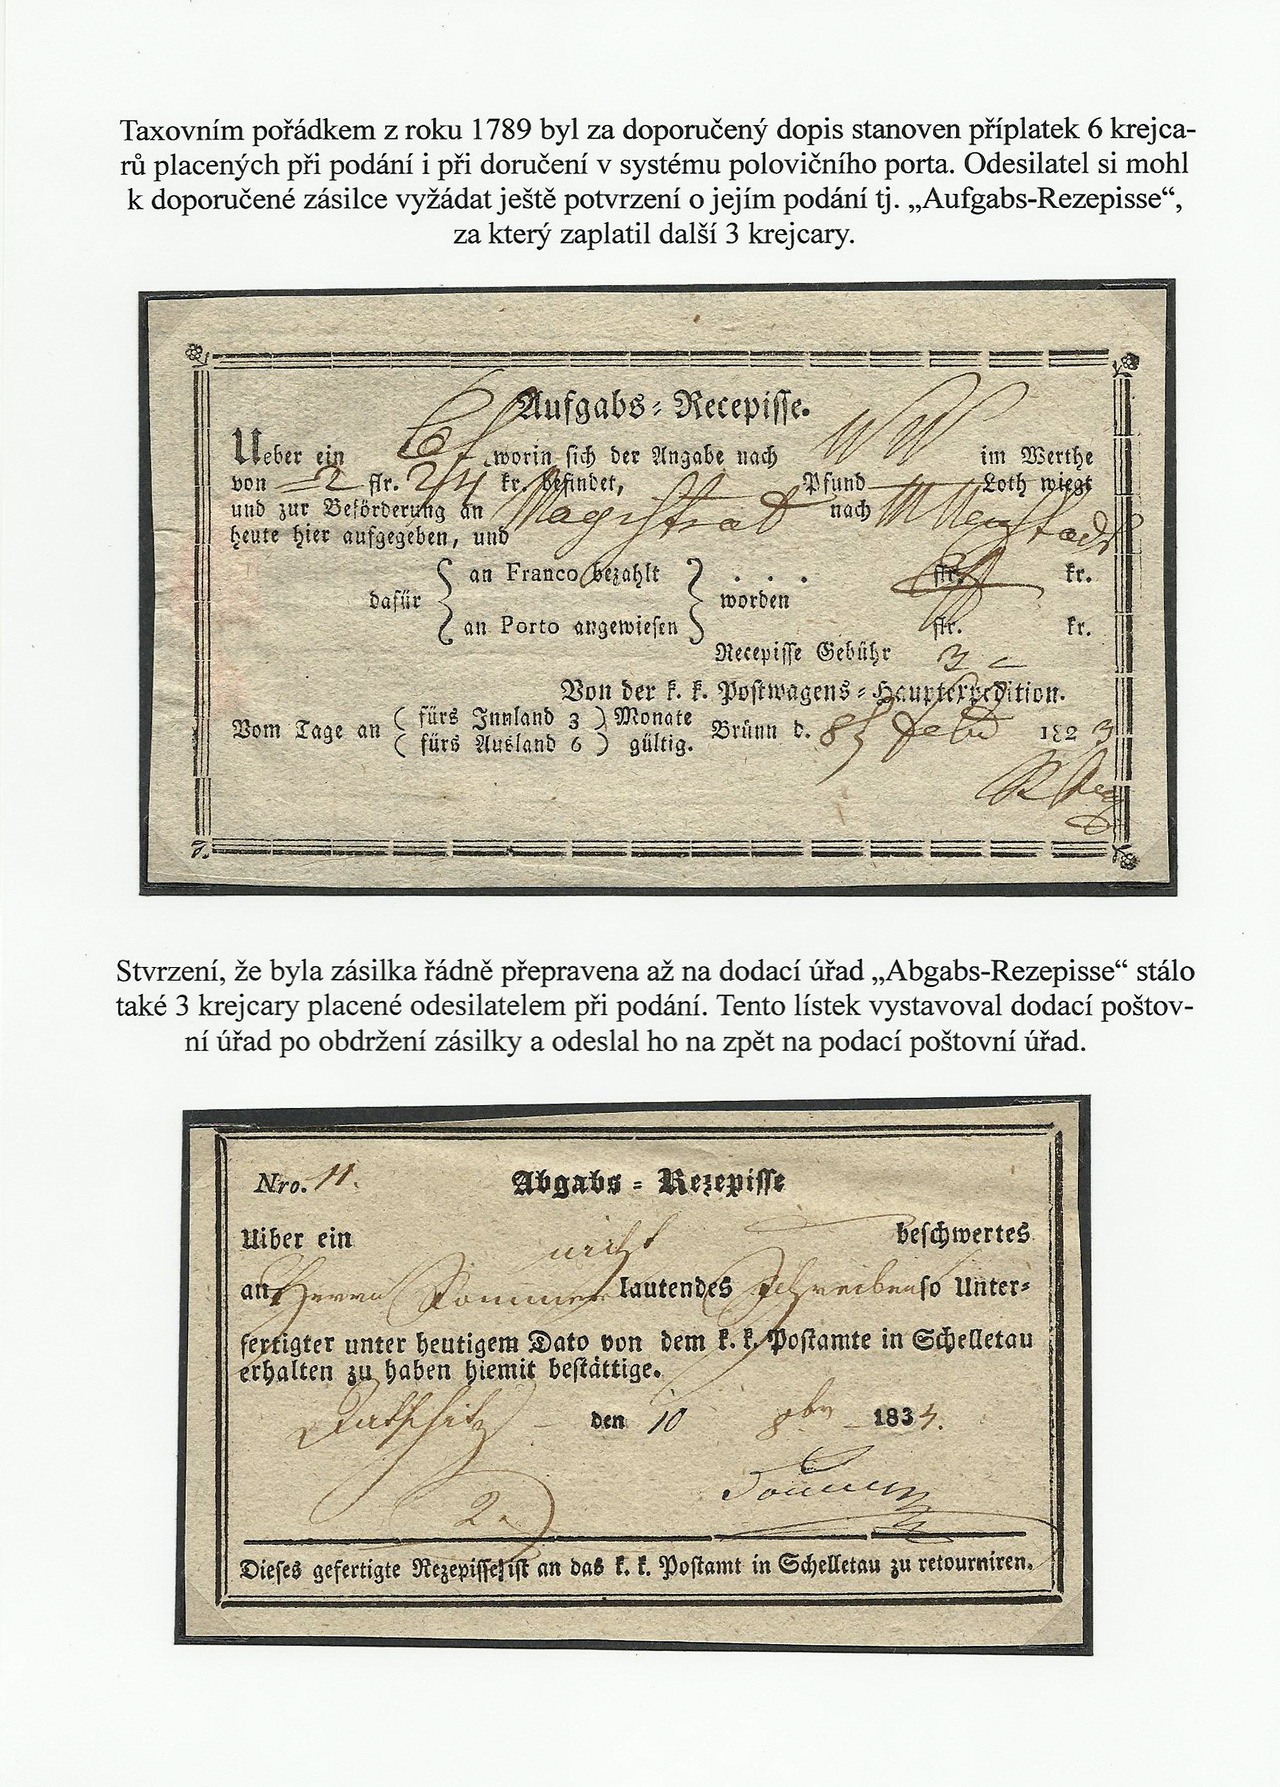 Taxovním pořádkem z roku 1789 byl za doporučený dopis stanoven příplatek 6 krejca-
rů placených při podání i při doručení v systému polovičního porta. Odesilatel si mohl
k doporučené zásilce vyžádat ještě potvrzení o jejím podání tj. „Aufgabs-Rezepisse“,
za který zaplatil další 3 krejcary.
Aufgabs-Recepisse.
Ueber ein worin sich der Angabe nach WW im Werthe
von 2 flr. 24 kr. befindet, Pfund Loth wiegt
und zur Beförderung an Magistrat nach Neustadt
heute hier aufgegeben, und
an Franco bezahlt . . . flr. kr.
dafür worden
an Porto angewiesen flr. kr.
Recepisse Gebühr 3
Von der k. k. Postwagens-Hauptexpedition.
Vom Tage an fürs Innland 3 Monate fürs Ausland 6 gültig. Brünn d. 8 Feb 1823
Stvrzení, že byla zásilka řádně přepravena až na dodací úřad „Abgabs-Rezepisse“ stálo
také 3 krejcary placené odesilatelem při podání. Tento lístek vystavoval dodací poštov-
ní úřad po obdržení zásilky a odeslal ho na zpět na podací poštovní úřad.
Nro. 11. Abgabs-Rezepisse
Uiber ein nicht beschwertes
an Herrn Sommer lautendes Schreiben so Unter-
fertigter unter heutigem Dato von dem k. k. Postamte in Schelletau
erhalten zu haben hiemit bestättige.
Datschitz den 10 8br 183
Sommer
2.
Dieses gefertigte Rezepisse ist an das k. k. Postamt in Schelletau zu retourniren.